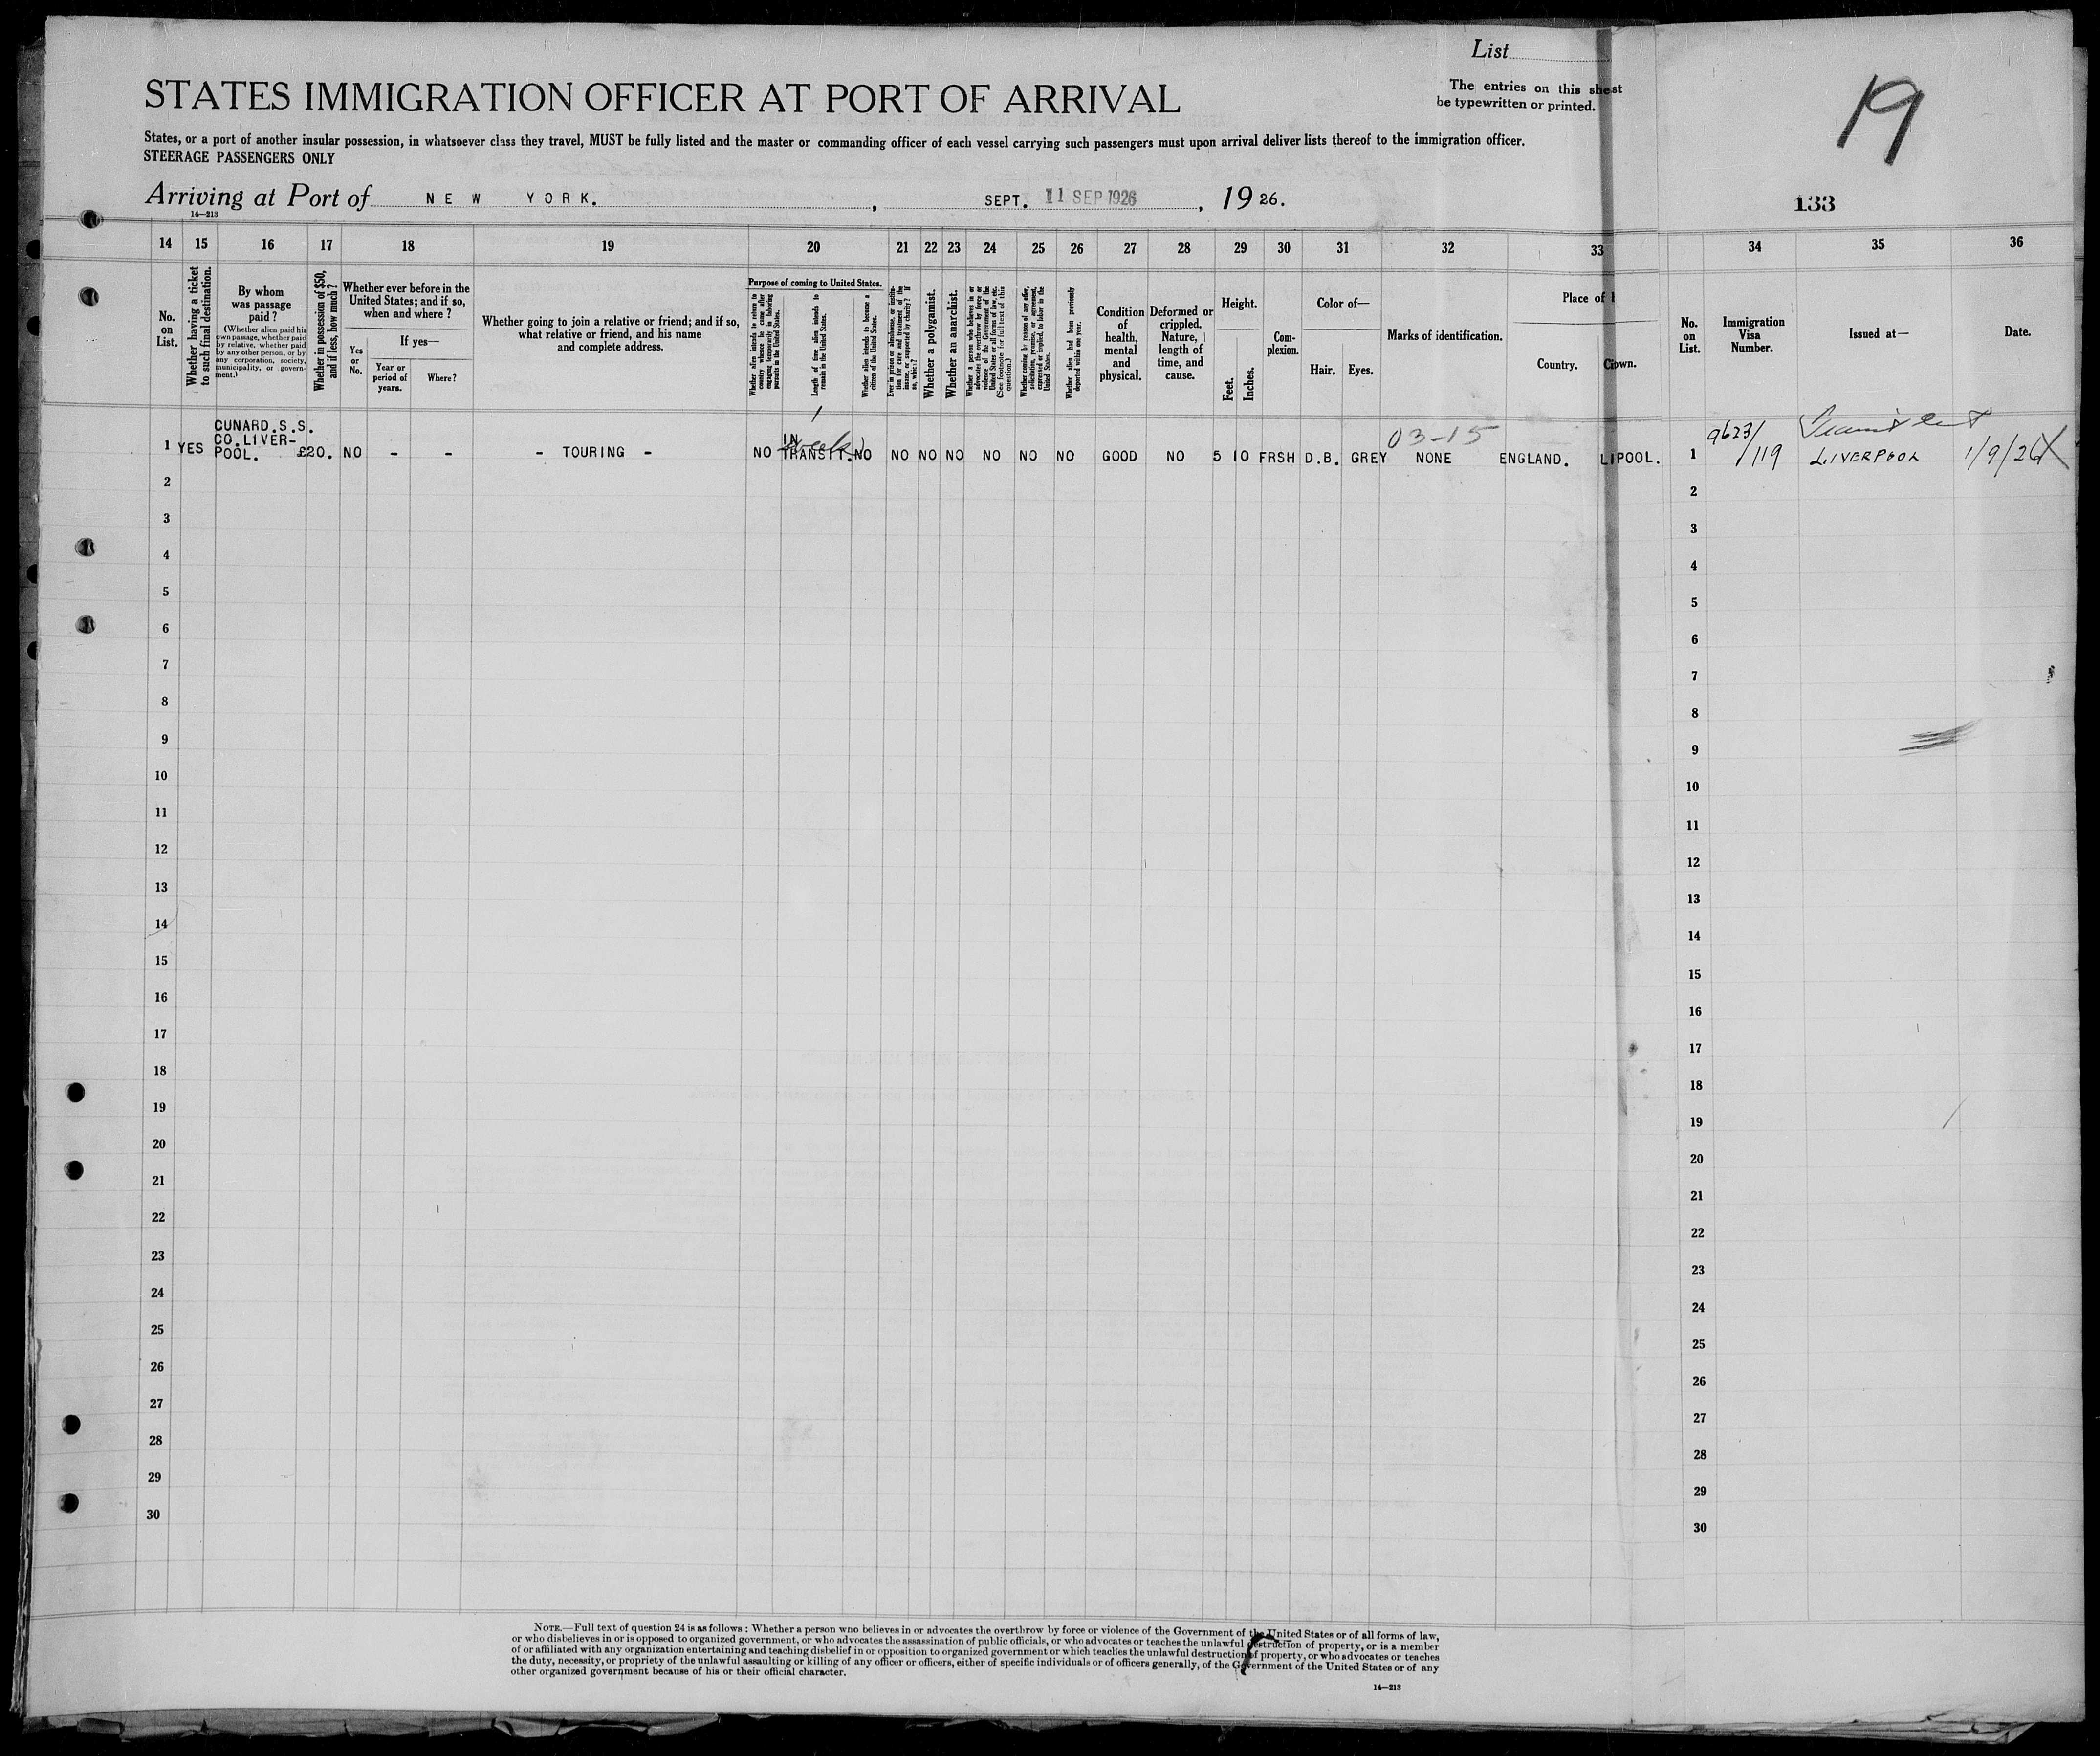 List
STATES IMMIGRATION OFFICER AT PORT OF ARRIVAL
The entries on this sheet
be typewritten or printed.
19
States, or a port of another insular possession, in whatsoever class they travel, MUST be fully listed and the master or commanding officer of each vessel carrying such passengers must upon arrival deliver lists thereof to the immigration officer.
STEERAGE PASSENGERS ONLY
Arriving at Port of NEW YORK. , SEPT. 11 SEP 1926 , 19 26.
133
14—213
14 15 16 17 18 19 20 21 22 23 24 25 26 27 28 29 30 31 32 33 34 35 36
No. on List.
Whether having a ticket to such final destination.
By whom was passage paid?
(Whether alien paid his own passage, whether paid by relative, whether paid by any other person, or by any corporation, society, municipality, or government.)
Whether in possession of $50, and if less, how much?
Whether ever before in the United States; and if so, when and where?
Yes or No.
If yes—
Year or period of years.
Where?
Whether going to join a relative or friend; and if so, what relative or friend, and his name and complete address.
Purpose of coming to United States.
Whether alien intends to return to country whence he came after engaging temporarily in laboring pursuits in the United States.
Length of time alien intends to remain in the United States.
Whether alien intends to become a citizen of the United States.
Ever in prison or almshouse, or institution for care and treatment of the insane, or supported by charity? If so, which?
Whether a polygamist.
Whether an anarchist.
Whether a person who believes in or advocates the overthrow by force or violence of the Government of the United States or all forms of law, etc. (See footnote for full text of this question.)
Whether coming by reason of any offer, solicitation, promise, or agreement, expressed or implied, to labor in the United States.
Whether alien had been previously deported within one year.
Condition of health, mental and physical.
Deformed or crippled. Nature, length of time, and cause.
Height.
Feet. Inches.
Complexion.
Color of—
Hair. Eyes.
Marks of identification.
Place of
Country. town.
No. on List.
Immigration Visa Number.
Issued at—
Date.
1 YES CUNARD.S.S. CO.LIVERPOOL. £20. NO - - - TOURING - NO IN TRANSIT. 1 week NO NO NO NO NO NO NO GOOD NO 5 10 FRSH D.B. GREY 03-15 NONE ENGLAND. LIPOOL. 1 9623/119 LIVERPOOL 1/9/26 X
2 2
3 3
4 4
5 5
6 6
7 7
8 8
9 9
10 10
11 11
12 12
13 13
14 14
15 15
16 16
17 17
18 18
19 19
20 20
21 21
22 22
23 23
24 24
25 25
26 26
27 27
28 28
29 29
30 30
NOTE.—Full text of question 24 is as follows: Whether a person who believes in or advocates the overthrow by force or violence of the Government of the United States or of all forms of law,
or who disbelieves in or is opposed to organized government, or who advocates the assassination of public officials, or who advocates or teaches the unlawful destruction of property, or is a member
of or affiliated with any organization entertaining and teaching disbelief in or opposition to organized government or which teaches the unlawful destruction of property, or who advocates or teaches
the duty, necessity, or propriety of the unlawful assaulting or killing of any officer or officers, either of specific individuals or of officers generally, of the Government of the United States or of any
other organized government because of his or their official character.
14—213